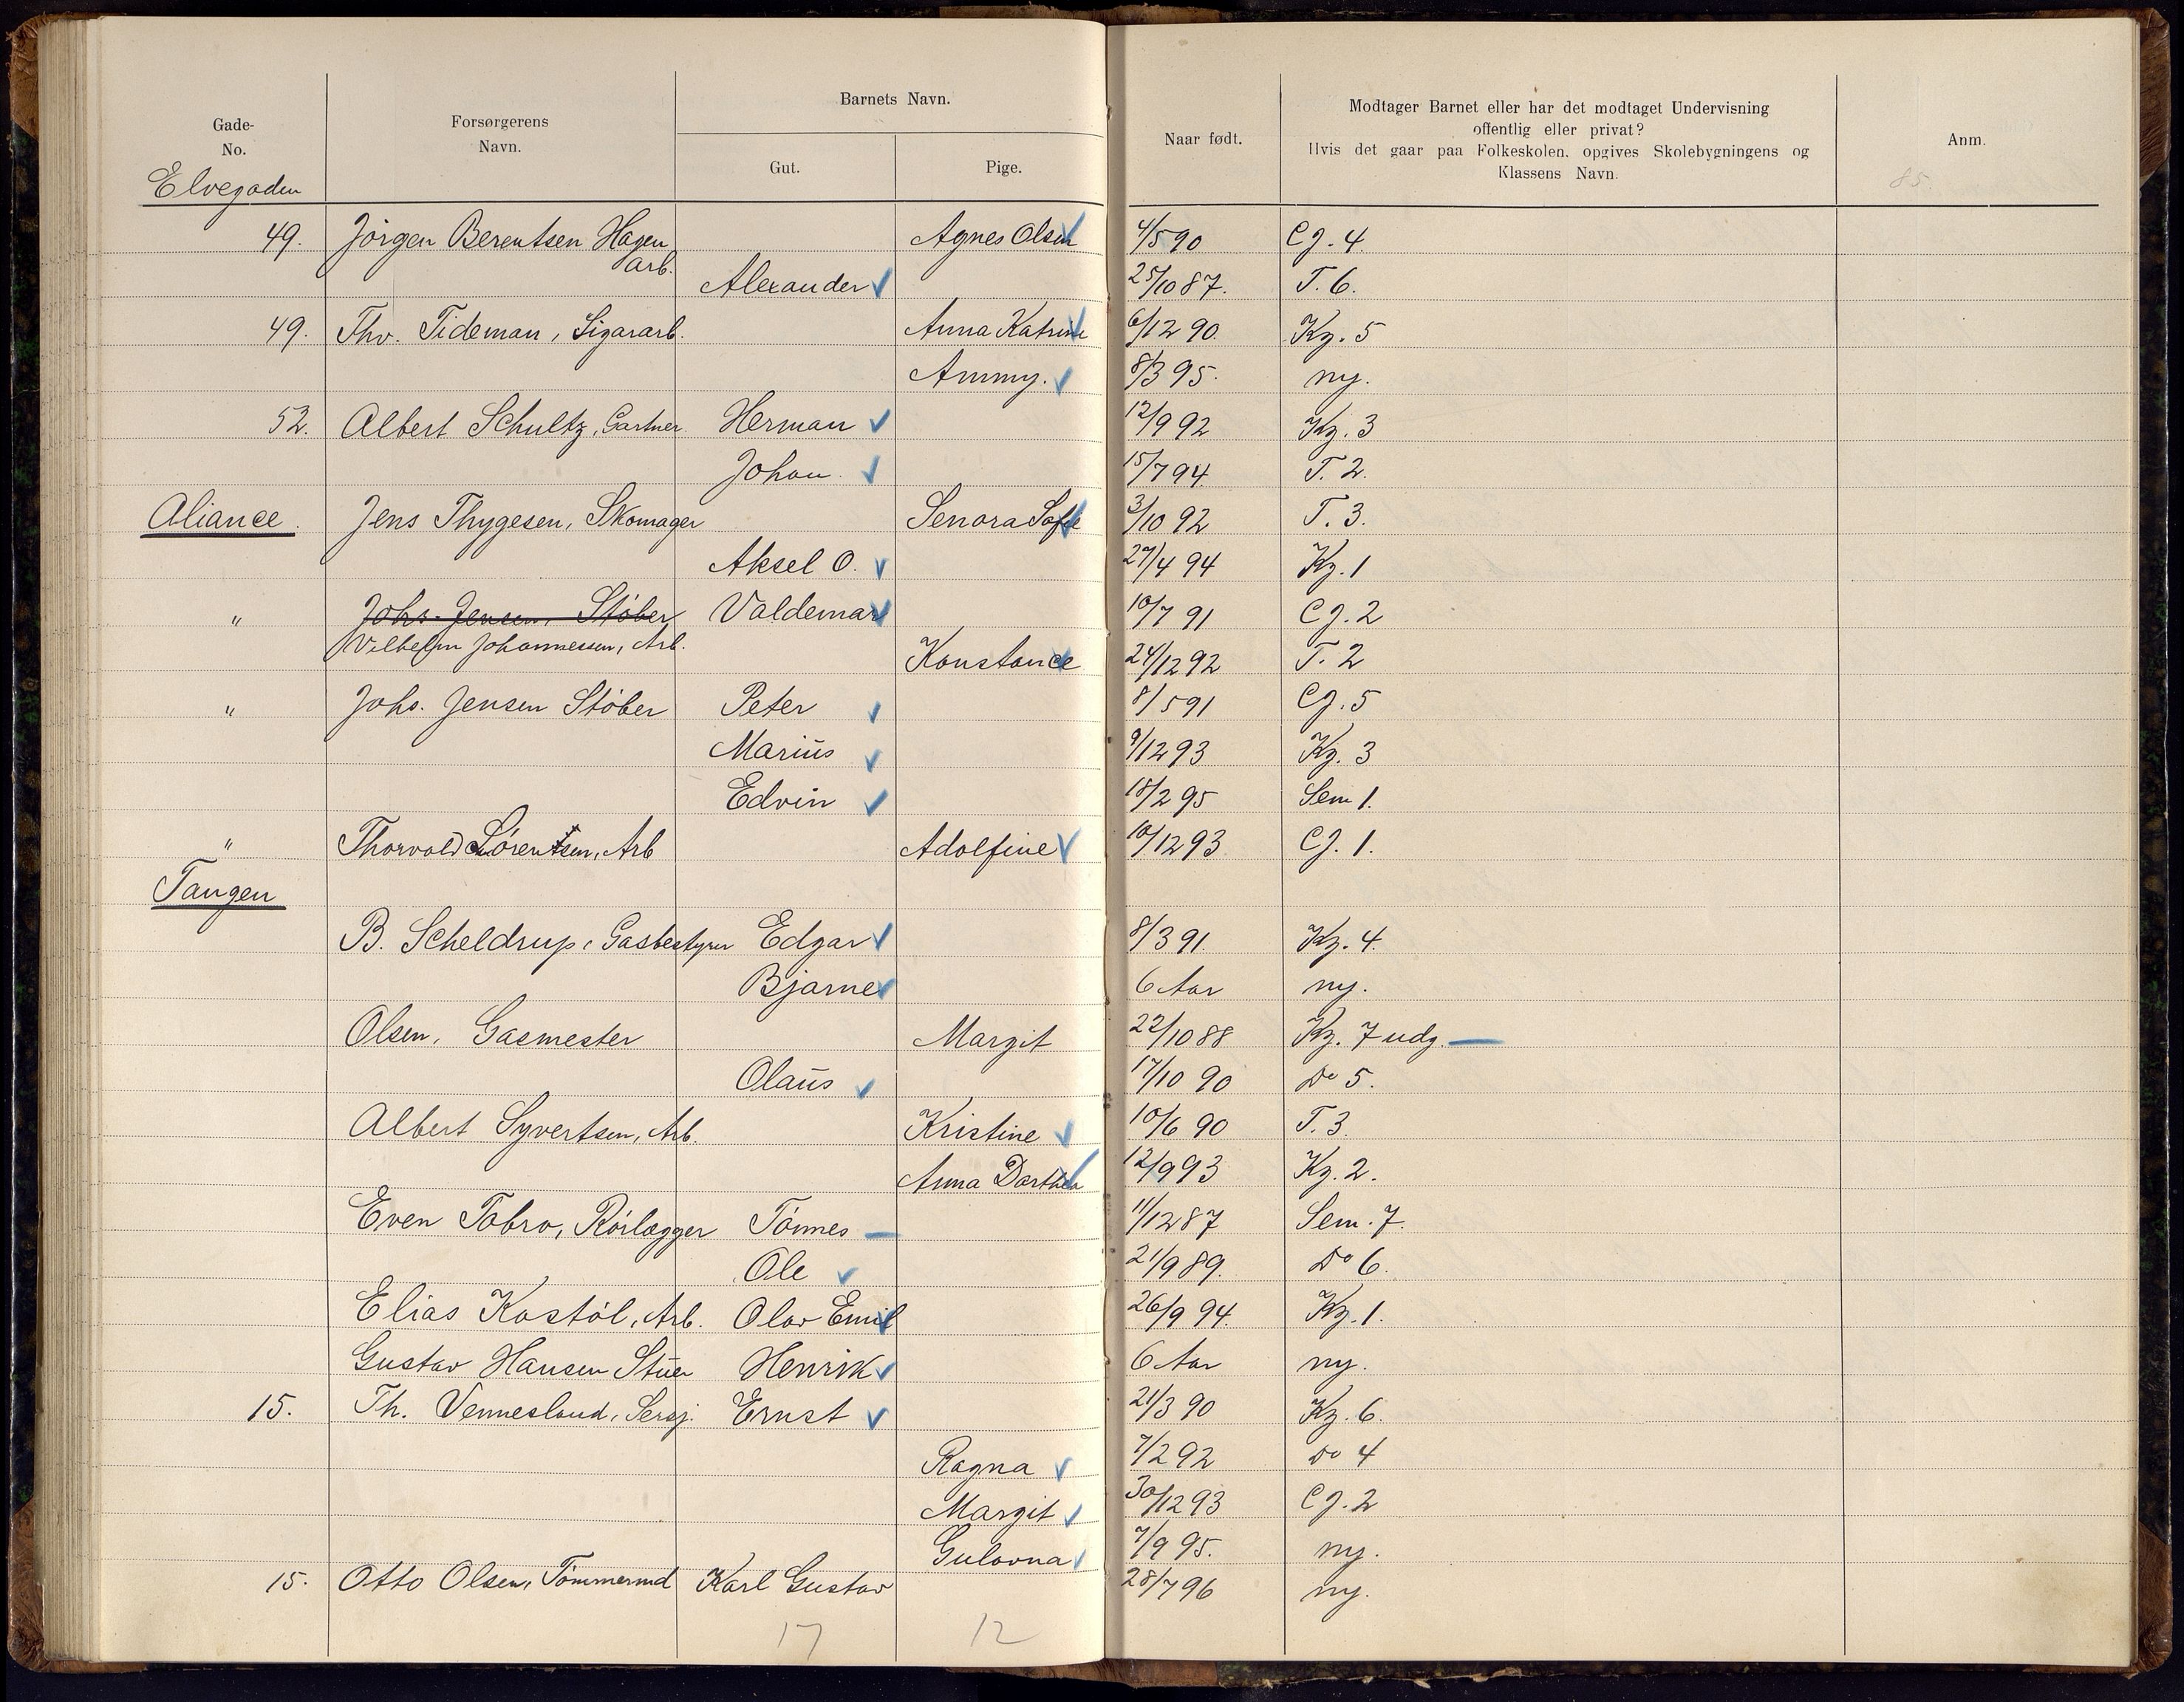 Gade-
No.
Forsørgerens
Navn.
Barnets Navn.
Gut.
Pige.
Naar født.
Modtager Barnet eller har det modtaget Undervisning
offentlig eller privat?
Hvis det gaar paa Folkeskolen, opgives Skolebygningens og
Klassens Navn.
Anm.
85.
Elvegaden
49. Jörgen Berentsen Hagen Agnes Olsen 4/5 90 Cg. 4.
Arb.
Alexander 25/10 87. T. 6.
49. Thv. Tideman, Sigararb. Anna Katrine 6/12 90. Kg. 5
Ammy. 8/3 95. ny.
52. Albert Schultz, Gartner. Herman 12/9 92 Kg. 3
Johan. 15/7 94 T. 2.
Aliance. Jens Thygesen, Skomager Senora Sofie 3/10 92 T. 3.
Aksel O. 27/4 94 Kg. 1
" Johs. Jensen, Støber Valdemar 10/7 91 Cg. 2
Vilhelm Johannessen, Arb.
Konstance 24/12 92 T. 2
" Johs. Jensen Støber Peter 8/5 91 Cg. 5
Marius 9/12 93 Kg. 3
Edvin 18/2 95 Sem 1.
" Thorvald Sørensen, Arb Adolfine 10/12 93 Cg. 1.
Tangen
B. Scheldrup, Gasbestyrer Edgar 8/3 91. Kg. 4.
Bjarne 6 Aar ny.
Olsen, Gasmester Margit 22/10 88 Kg. 7 udg. —
Olaus 17/10 90 Do 5.
Albert Syvertsen, Arb. Kristine 10/6 90 T. 3.
Anna Darthea 12/9 93 Kg. 2.
Even Tobro, Rörlægger Tönnes — 11/12 87 Sem. 7.
Ole 21/9 89. Do 6.
Elias Kostöl, Arb. Olav Emil 26/9 94. Kg. 1.
Gustav Hansen Stuer Henrik 6 Aar ny.
15. Th. Vennesland, Sersj. Ernst 21/3 90 Kg. 6.
Ragna 7/2 92 Do 4
Margit 30/12 93 Cg. 2
Gulovna 7/9 95. ny.
15. Otto Olsen, Tömmermd Karl Gustav 28/7 96 ny.
17 12